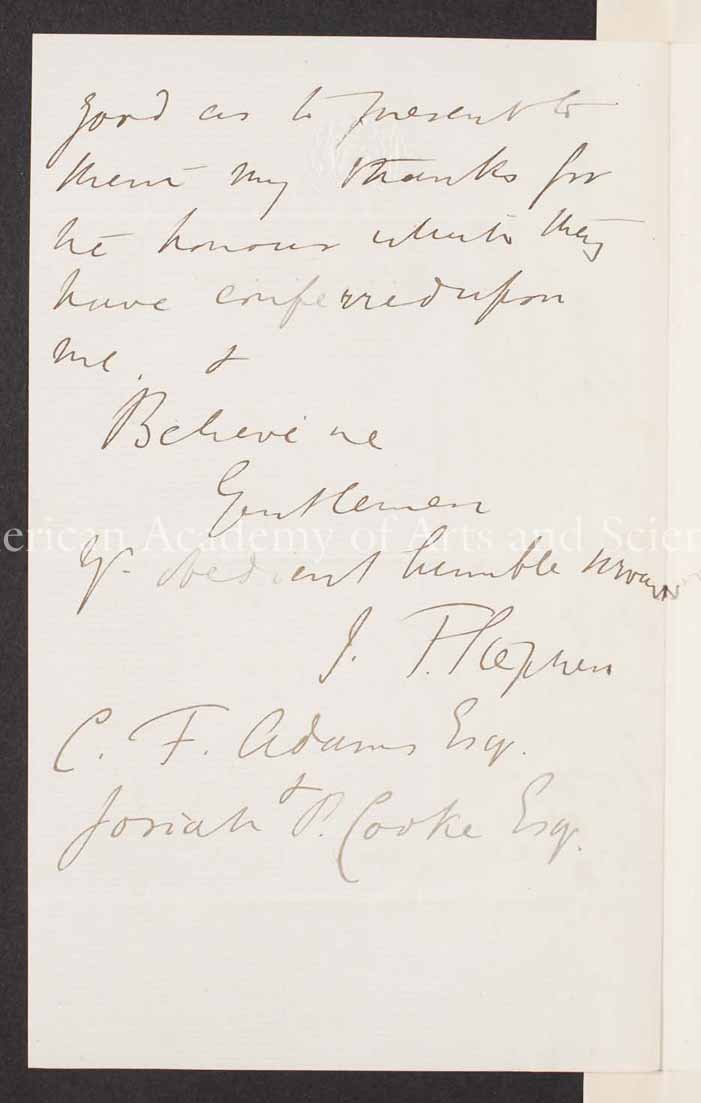 good as to present to
them my thanks for
he honour which they
have conferred upon
me. &
Believe me
Gentlemen
American Academy of Arts and Sciences
Yr. obedient humble servant
J. F. Stephen
C. F. Adams Esq.
&
Josiah P. Cooke Esq.